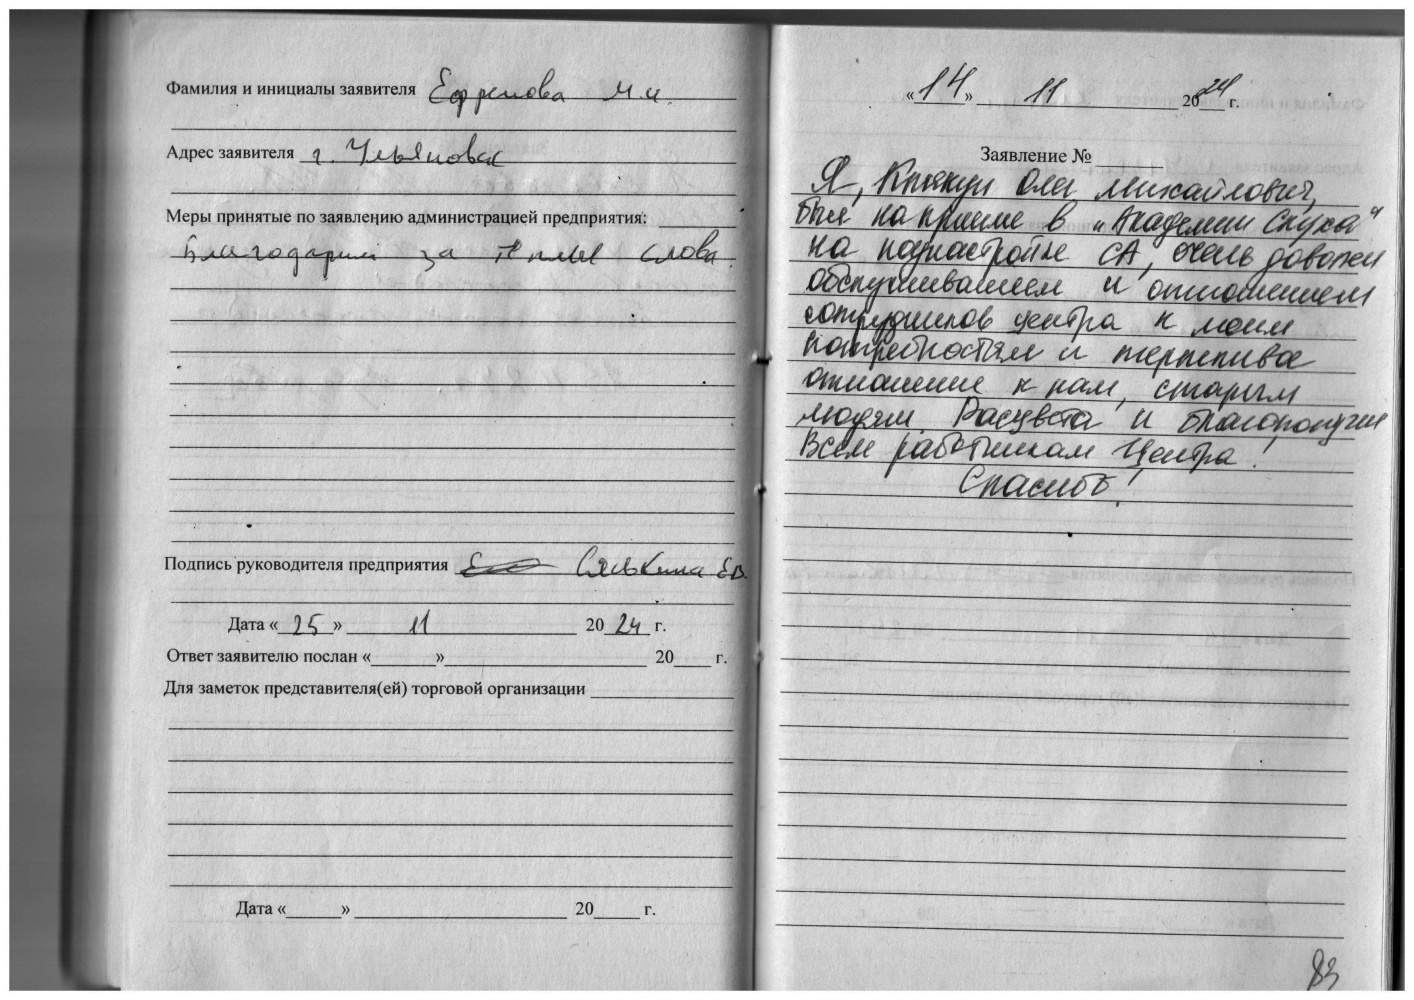 Фамилия и инициалы заявителя Ефремова М.И.
Адрес заявителя г. Ульяновск
Меры принятые по заявлению администрацией предприятия:
Благодарим за теплые слова.
Подпись руководителя предприятия Сяськина Е.В.
Дата «25» 11 2024 г.
Ответ заявителю послан «______»______ 20____ г.
Для заметок представителя(ей) торговой организации
Дата «______» ______ 20____ г.
«14» 11 2024 г.
Заявление № ______
Я, Олег Михайлович,
был на приеме в „Академии слуха"
на поднастройке СА, очень доволен
обслуживанием и отношением
сотрудников центра к моим
потребностям и терпеливое
отношение к нам, старым
людям Расцвета и благополучия
Всем работникам Центра!
Спасибо!
83